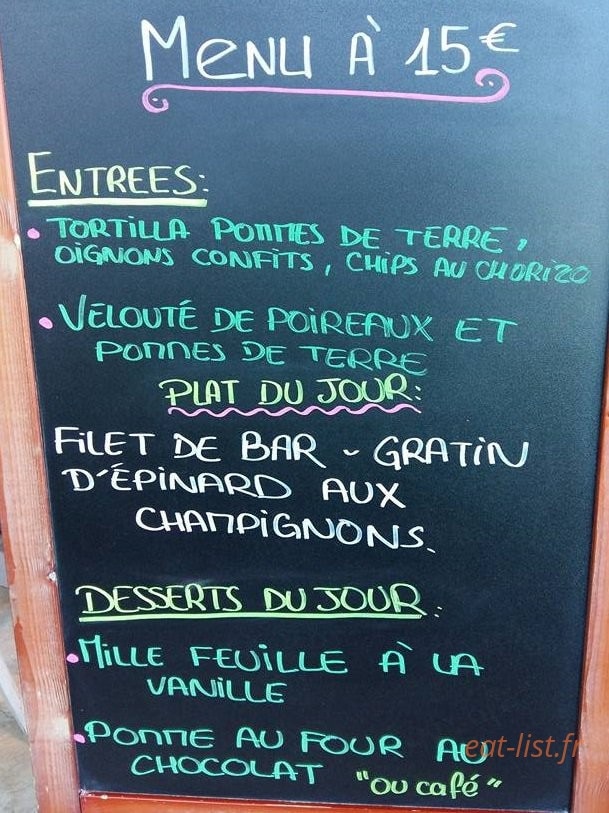 MENU À 15€
ENTREES:
• TORTILLA POMMES DE TERRE,
OIGNONS CONFITS, CHIPS AU CHORIZO
• VELOUTÉ DE POIREAUX ET
POMMES DE TERRE
PLAT DU JOUR:
FILET DE BAR - GRATIN
D'ÉPINARD AUX
CHAMPIGNONS.
DESSERTS DU JOUR:
• MILLE FEUILLE À LA
VANILLE
• POMME AU FOUR AU
CHOCOLAT "OU café"
eat-list.fr